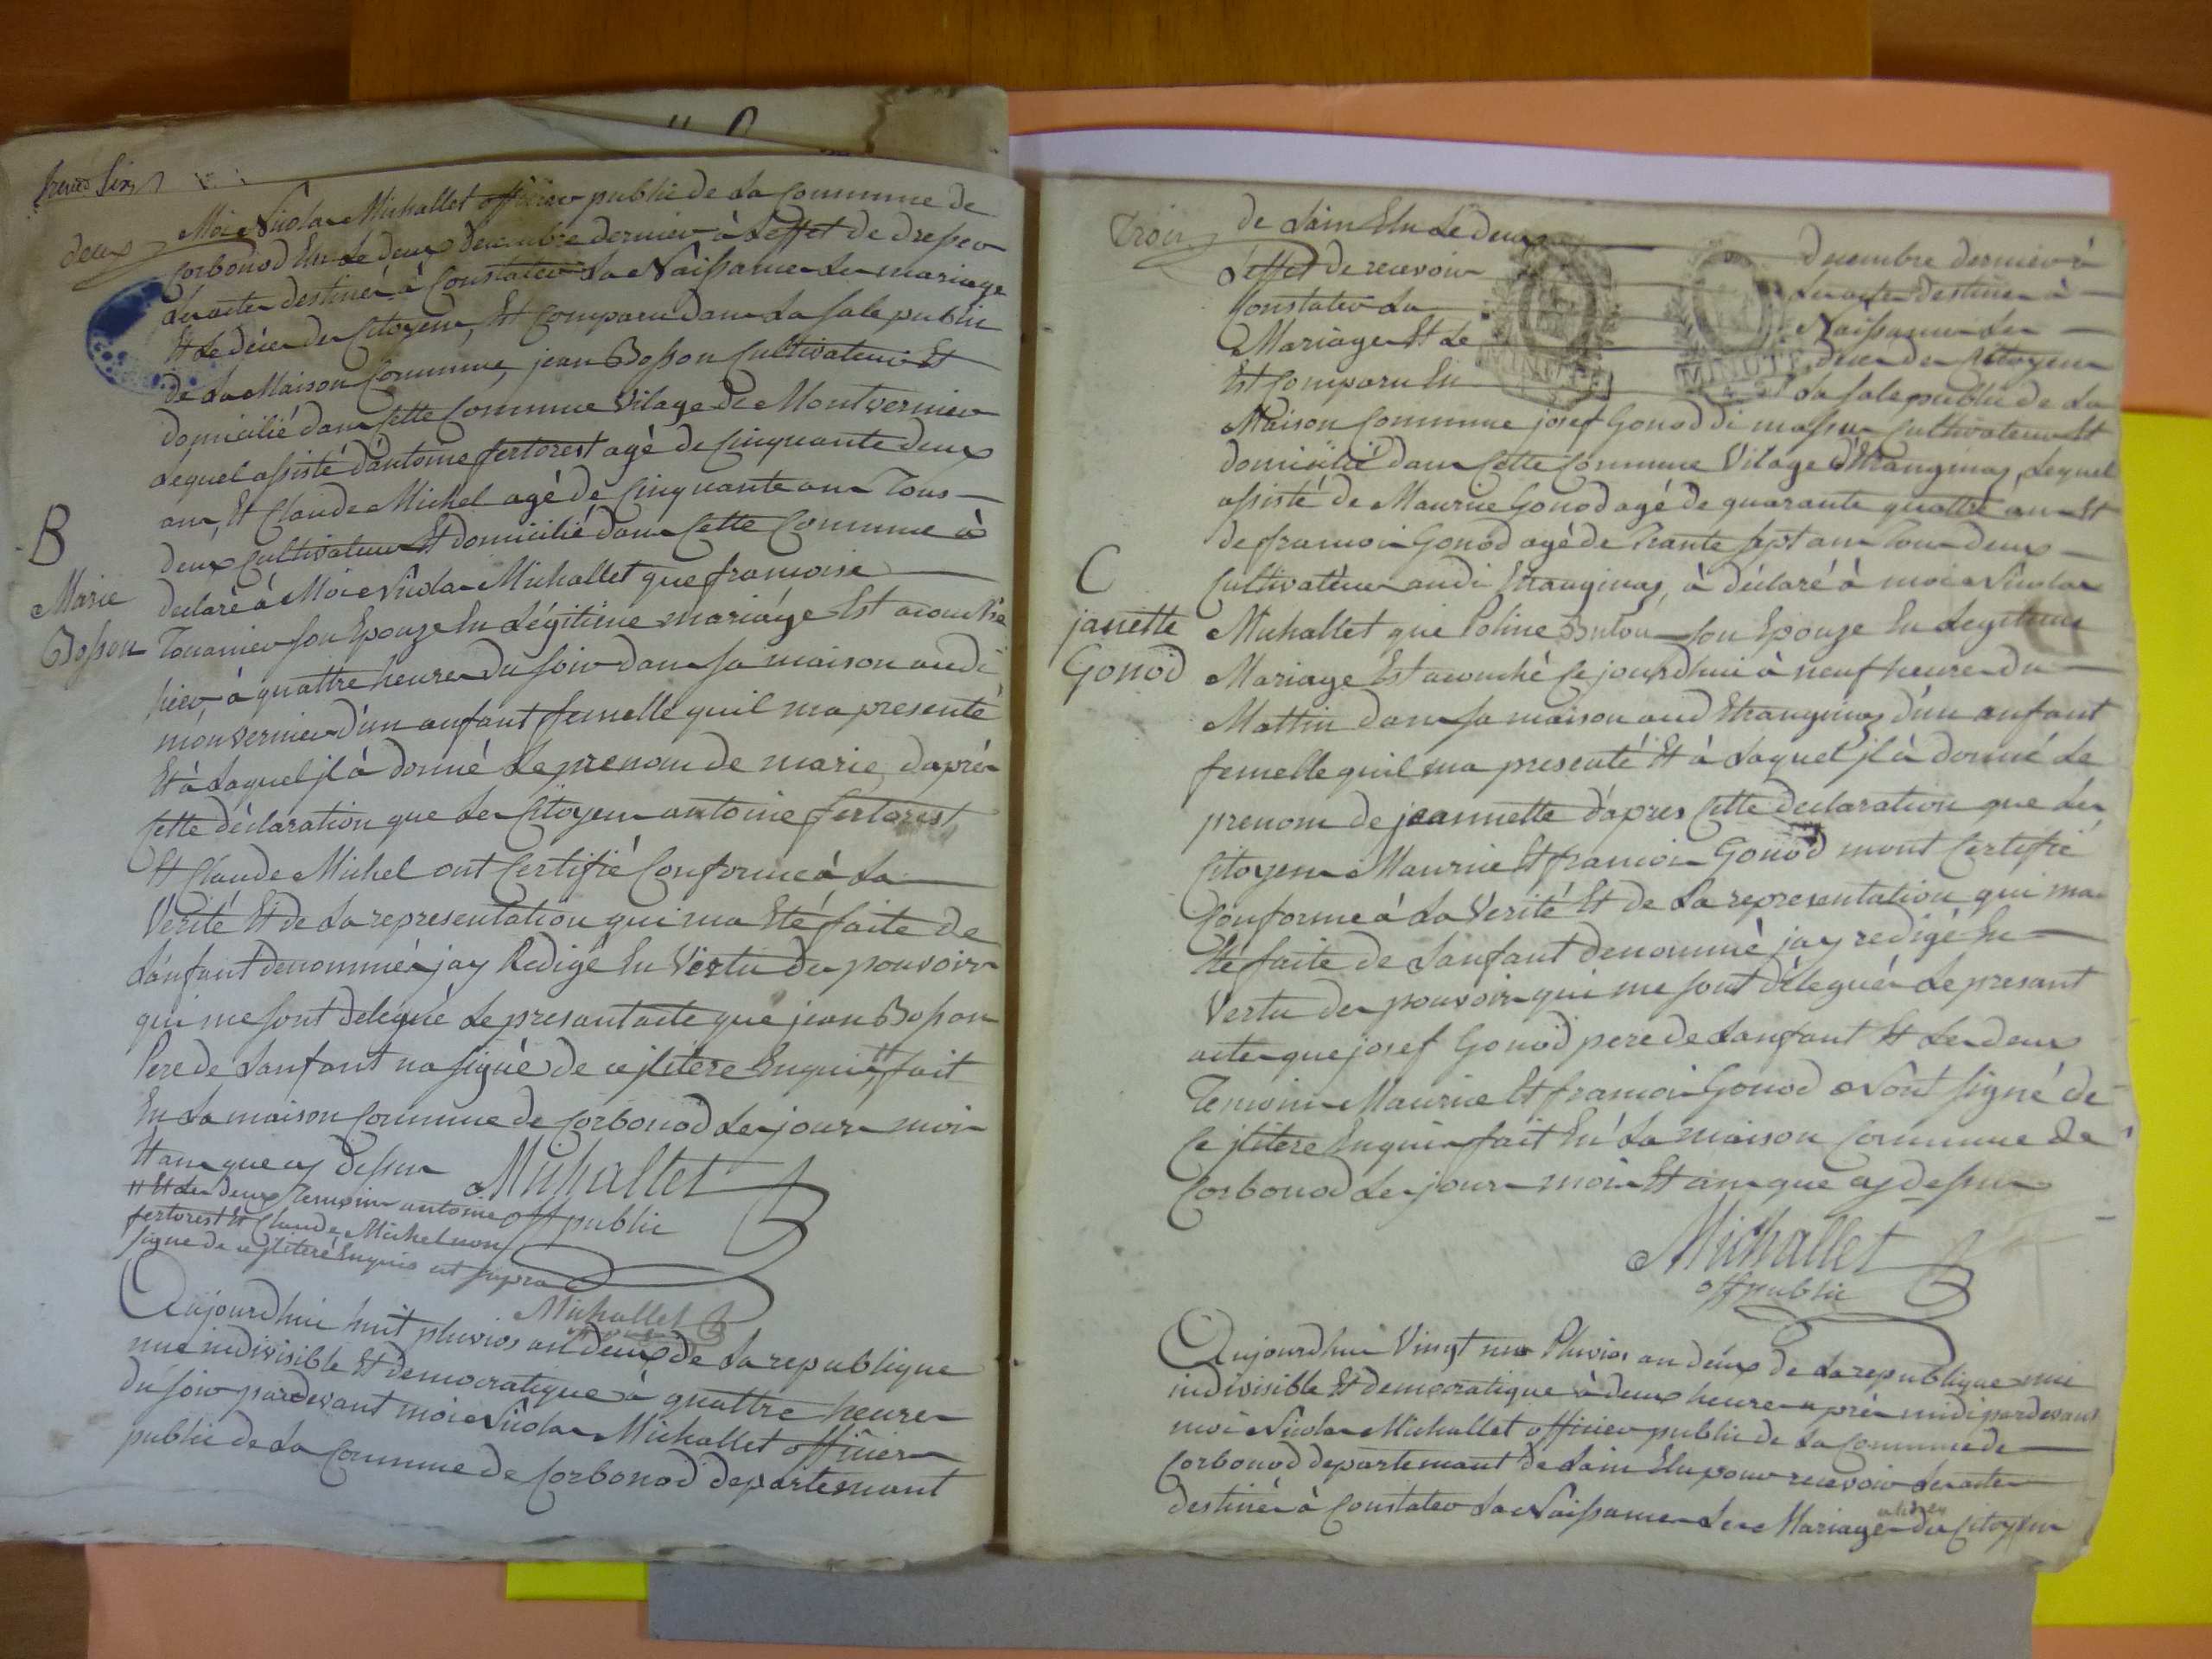 deux
Moi Nicolas Michallet officier public de La Commune de
Corbonod Elu Le deux decembre dernier à Leffet de dresser
Les actes destinés à Constater La Naissance Les mariage
Et Le déces des Citoyens, Est Comparu dans La sale public
de La Maison Commune, jean Bosson Cultivateur Et
domicilié dans Cette Commune Vilage de Montvernier
Lequel assisté d'antoine fertorest agé de Cinquante deux
ans, Et Claude Michel agé de Cinquante ans Tous
deux Cultivateurs Et domicilié dans Cette Commune à
declaré à Moi Nicolas Michallet que francoise
Tournier son Epouze En Légitime mariage Est acouchée
hier à quattre heures du soir dans sa maison audi
monvernier d'un anfant femelle quil ma presenté
Et à Laquel jl à donné Le prenom de marie, daprés
Cette déclaration que Les Citoyens antoine fertorest
Et Claude Michel ont Certifié Conforme à La
Verité Et de La representation qui ma Eté faite de
L'anfant denommé jay Redigé En Vertu des pouvoirs
qui me sont delégué Le presant acte que jean Bosson
Pere de Lanfant na signé de ce jlitere Enquis, fait
En La maison Commune de Corbonod Les jours mois
Et ans que cy dessus Michallet
off public
Et Les deux Temoins antoine
fertorest Et Claude Michel non
signe de ce jliteré Enquis ut supra
Michallet
B
Marie
Bosson
Aujourdhui huit pluvios an deux de La republique
une indivisible Et democratique à quattre heures
du soir pardevant moi Nicolas Michallet officier
public de La Commune de Corbonod departemant
Trois
de Lain Elu Le deux decembre dernier à
L'effet de recevoir Les actes destinés à
Constater La Naissance Les
Mariages Et Le déces des Citoyens
Est Comparu En La sale public de La
MINUTE MINUTE
Maison Commune josef Gonod di massu Cultivateur Et
domicilié dans Cette Commune Vilage d'Etranginas, Lequel
assisté de Maurice Gonod agé de quarante quattre ans Et
de francois Gonod agé de Trante sept ans Tous deux
Cultivateurs audi Etranginas, à déclaré à moi Nicolas
Michallet que Poline son Epouze En Legitime
Mariage Est acouché Ce jourdhui à neuf heures du
Mattin dans sa maison aud Etranginas d'un anfant
femelle quil ma presenté Et à Laquel jl à donné Le
prenom de jeannette d'apres Cette declaration que Les
Citoyens Maurice Et francois Gonod mont Certifié
Conforme à La Verité Et de La representation qui ma
Eté faite de Lanfant denommé jay redigé En
Vertu des pouvoirs qui me sont délegués Le presant
acte que josef Gonod pere de Lanfant Et Les deux
Temoins Maurice Et francois Gonod Nont signé de
Ce jlitere Enquis fait En La maison Commune de
Corbonod Les jours mois Et ans que cy dessus
Michallet
off public
C
janette
Gonod
Aujourdhui Vingt un Pluvios an deux de La republique une
indivisible Et democratique à deux heures après midi pardevant
moi Nicolas Michallet officier public de La Commune de
Corbonod departemant de Lain Elu pour recevoir Les actes
destinés à Constater La Naissance Les Mariages des Citoyens